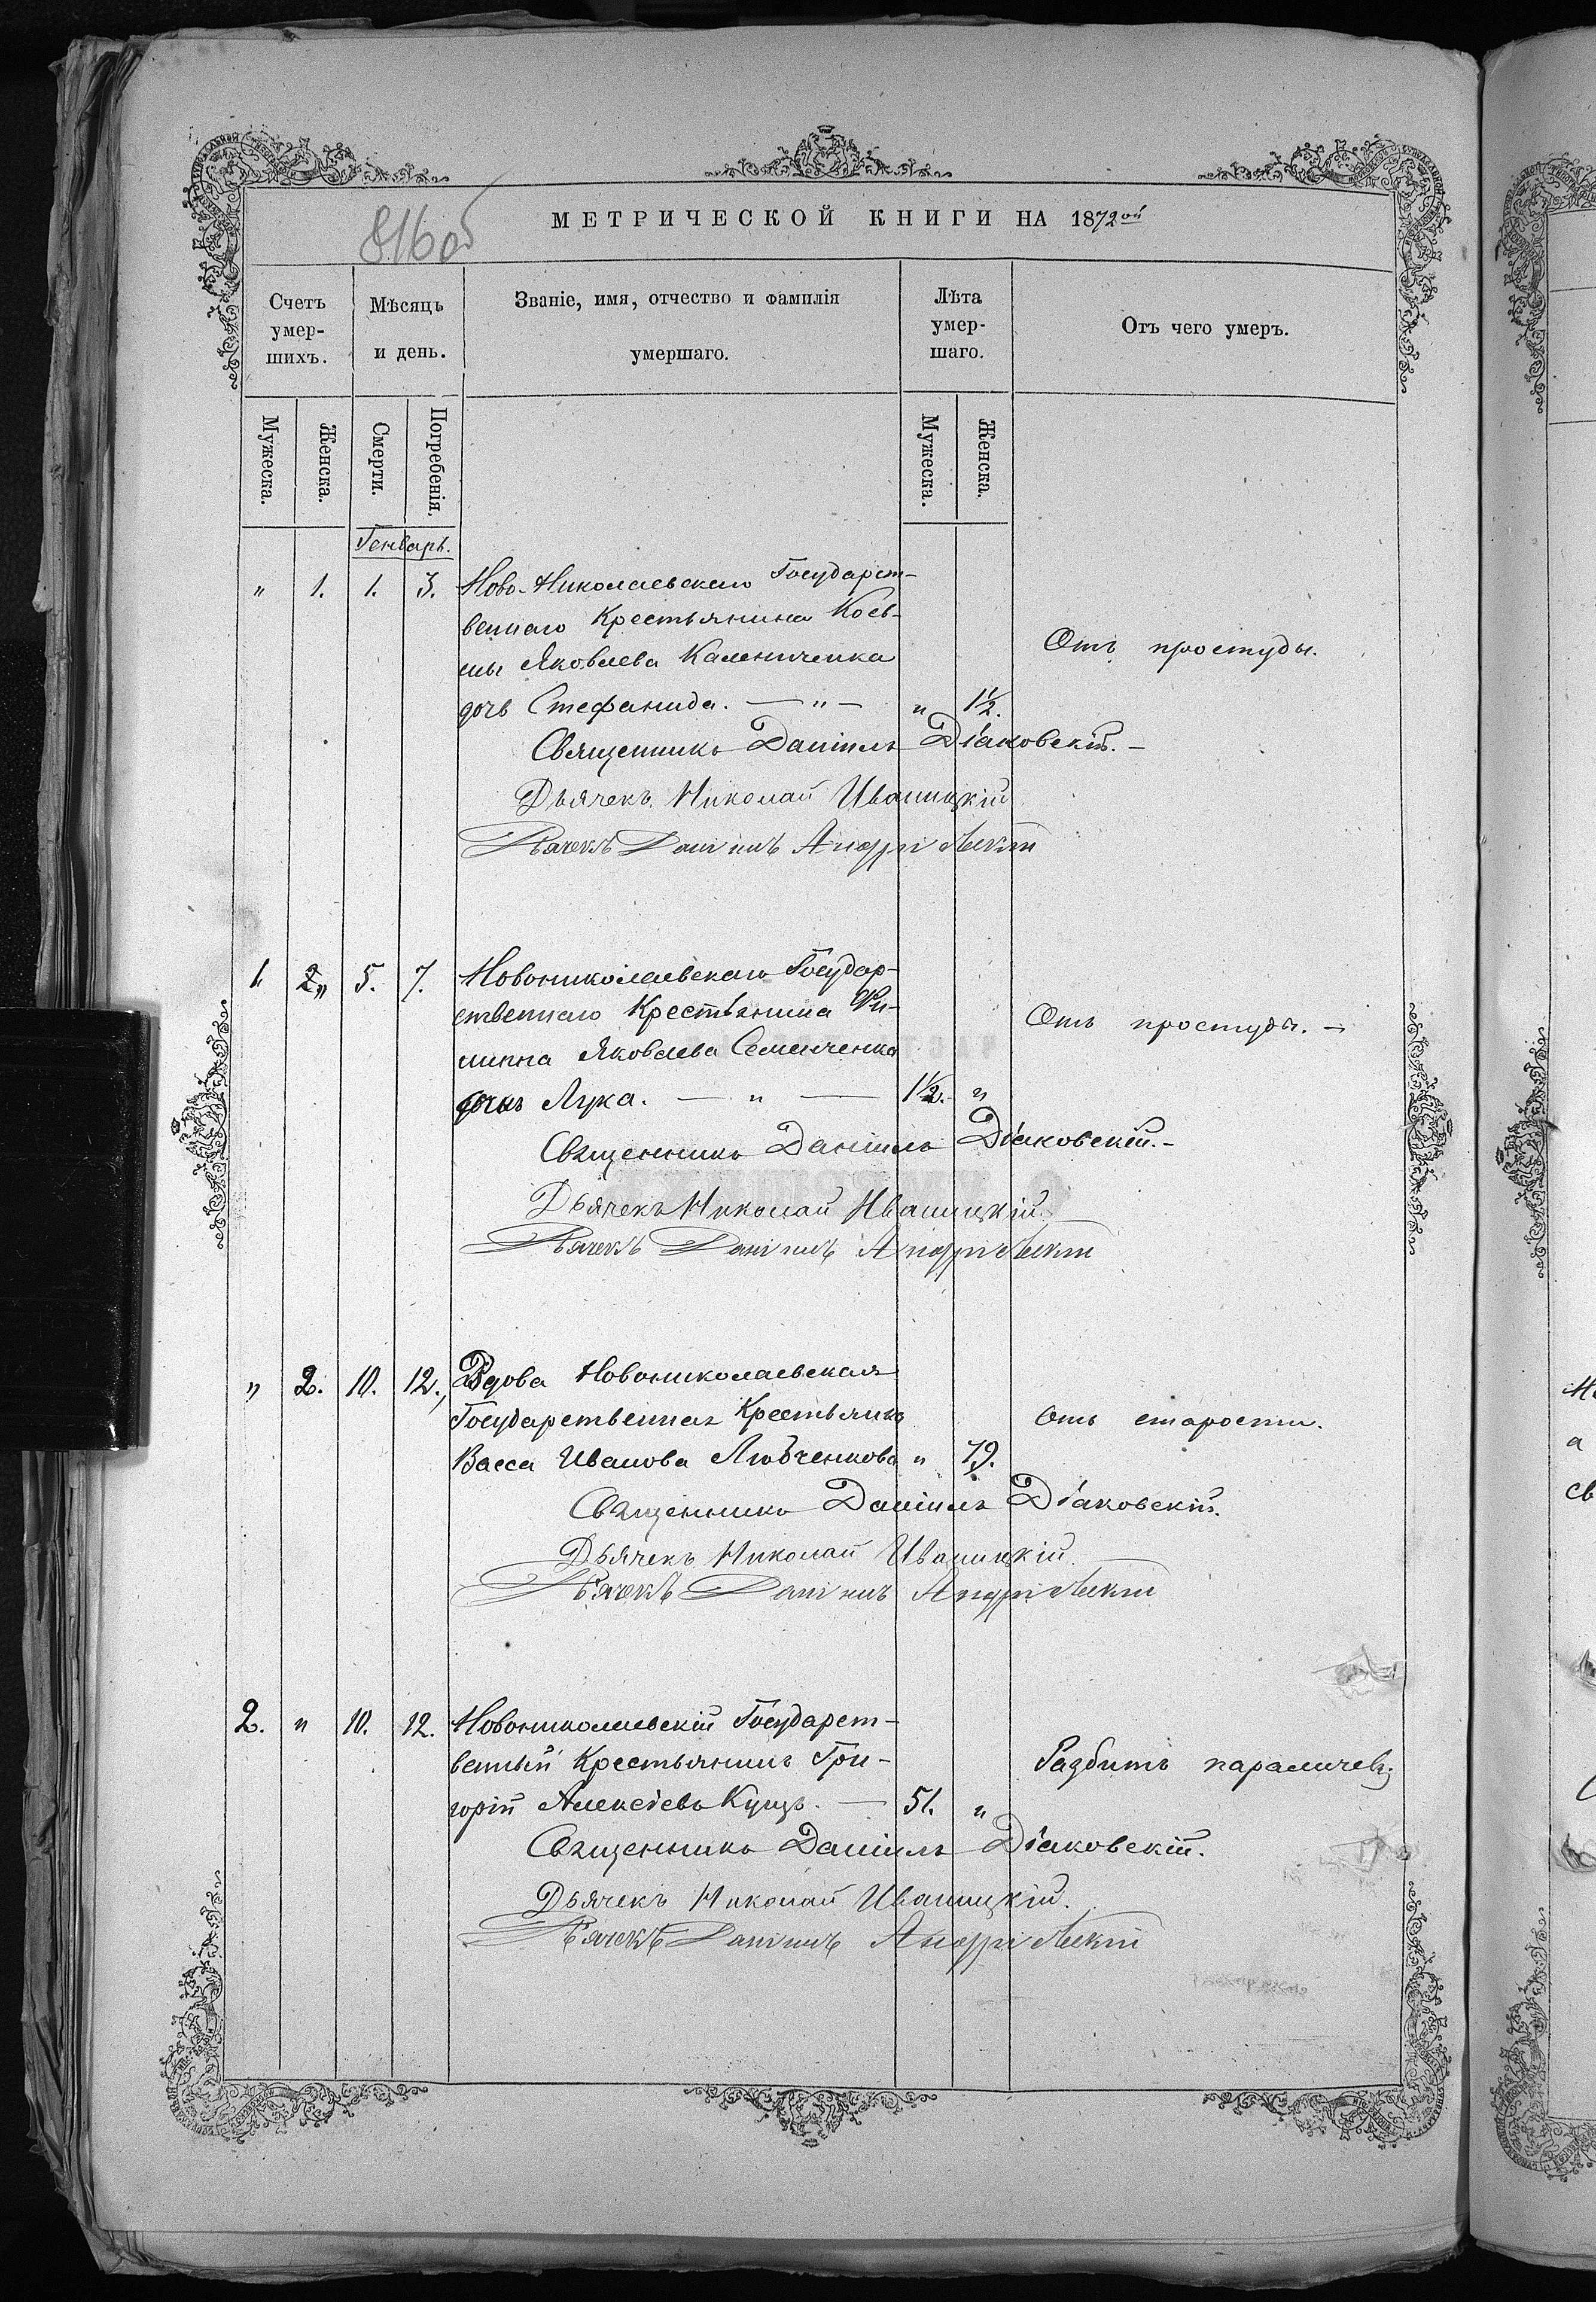 816об
МЕТРИЧЕСКОЙ КНИГИ НА 1872ой
Счетъ умер-шихъ.
Мѣсяцъ и день.
Званіе, имя, отчество и фамилія умершаго.
Лѣта умер-шаго.
Отъ чего умеръ.
Мужеска.
Женска.
Смерти.
Погребенія.
Мужеска.
Женска.
Генварь.
" 1. 1. 3. Ново-Николаевскаго Государст-
веннаго Крестьянина Косъ-
мы Яковлева Калениченка
Отъ простуды.
дочь Стефанида. — " — " 1½.
Священникъ Даніилъ Діаковскій. —
Дьячекъ Николай Иваницкій
Дьячекъ Даніилъ Андріевскій
1. 2" 5. 7. Новониколаевскаго Государ-
ственнаго Крестьянина Фи-
липпа Яковлева Семенченка
Отъ простуды. —
сынъ Лука. — " — 1½. "
Священникъ Даніилъ Діаковскій. —
Дьячекъ Николай Иваницкій.
Дьячекъ Даніилъ Андріевскій
" 2. 10. 12. Вдова Новониколаевская
Государственная Крестьянка
Отъ старости.
Васса Иванова Любченкова " 79.
Священникъ Даніилъ Діаковскій.
Дьячекъ Николай Иваницкій.
Дьячекъ Даніилъ Андріевскій
2. " 10. 12. Новониколаевскій Государст-
венный Крестьянинъ Гри-
Разбитъ параличемъ.
горій Алексѣевъ Куцъ. — 51. "
Священникъ Даніилъ Діаковскій.
Дьячекъ Николай Иваницкій.
Дьячекъ Даніилъ Андріевскій